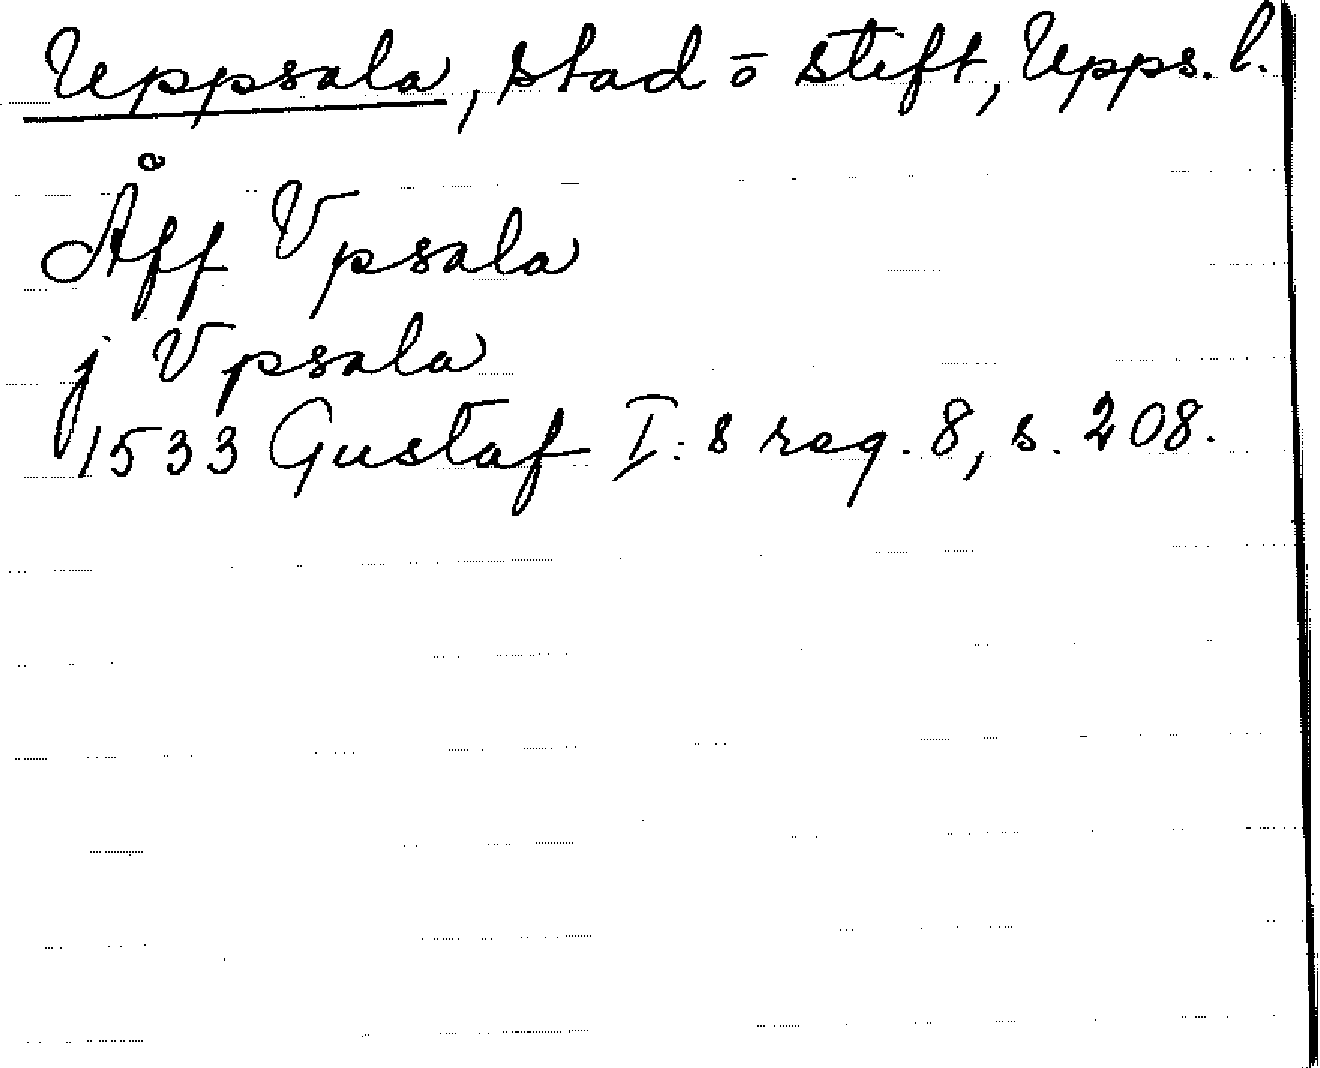 Uppsala, stad o stift, Upps. l.
Åff Vpsala
j Vpsala
1533 Gustaf I:s reg. 8, s. 208.